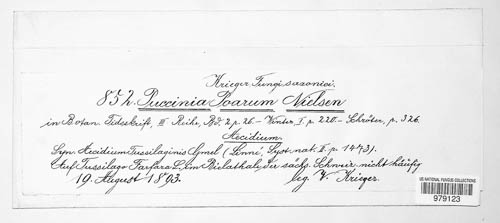 Krieger Fungi saxonici.
852. Puccinia Poarum Nielsen
in Botan. Tidsskrift, III Reihe, Bd. 2 p. 26. – Winter I. p. 220. – Schröter, p. 326.
Aecidium.
Syn. Aecidium Tussilaginis Gmel. (Linné, Syst. nat. II. p. 1473).
Auf Tussilago Farfara L. im Bielathale, der sächs. Schweiz nicht häufig
19. August 1893. leg. W. Krieger.
US NATIONAL FUNGUS COLLECTIONS
979123